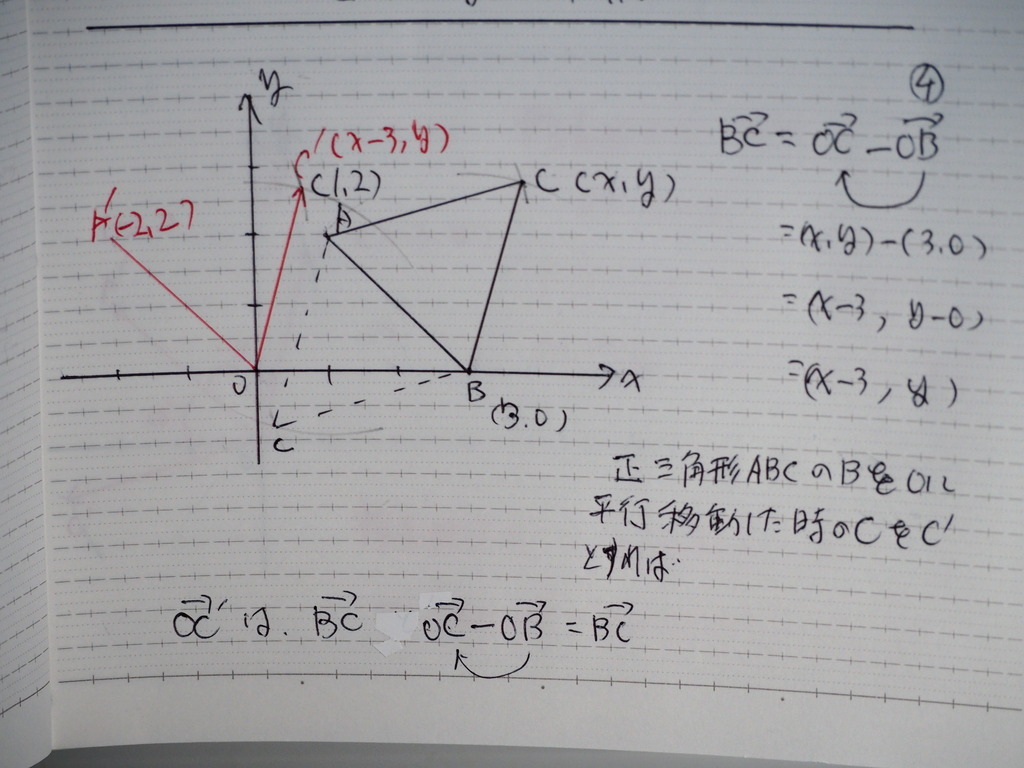 ④
y
C'(x-3,y)
BC = OC - OB
A'(-2,2)
(1,2)
A
C (x,y)
=(x,y)-(3.0)
=(x-3, y-0)
=(x-3, y)
O
B
x
(3.0)
C
正三角形ABCのBをOに
平行移動した時のCをC'
とすれば
OC' は. BC OC - OB = BC